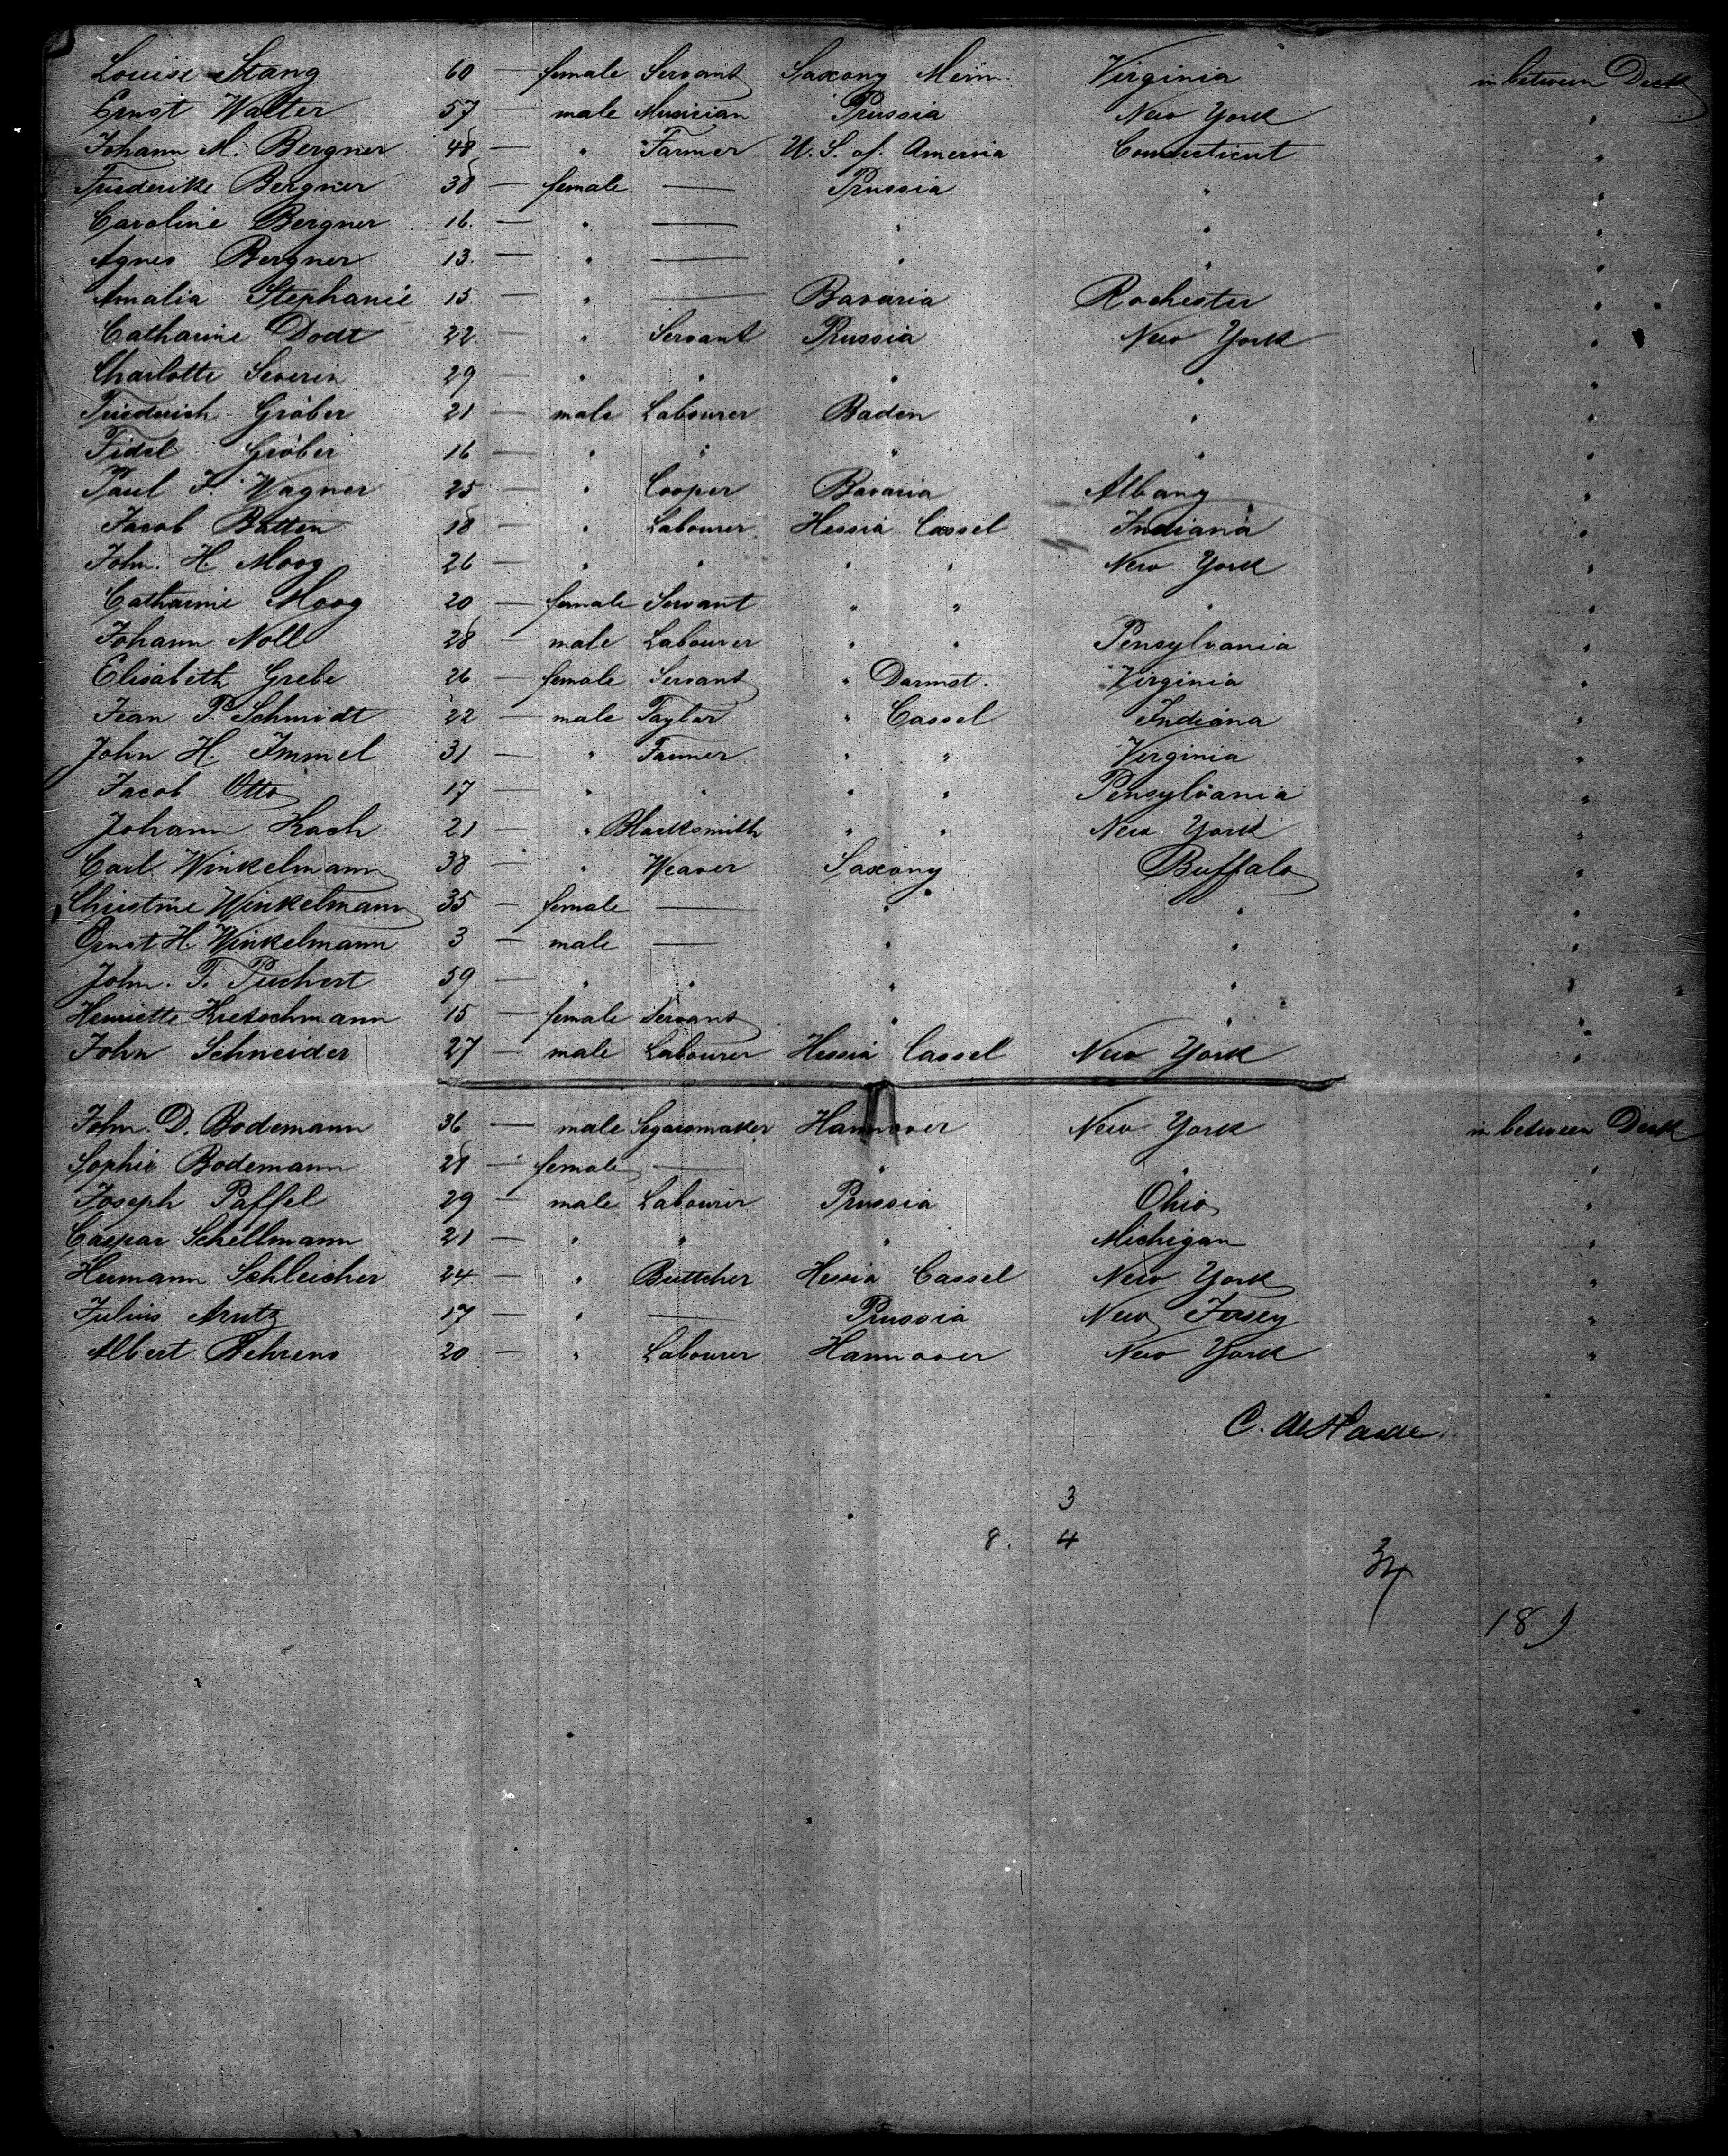 Louise Stang 60 — female Servant Saxony Mein. Virginia in between Deck
Ernst Walter 57 — male Musician Prussia New York "
Johann M. Bergner 48 — " Farmer U. S. of America Connecticut "
Friederike Bergner 38 — female — Prussia " "
Caroline Bergner 16. — " — " " "
Agnes Bergner 13. — " — " " "
Amalia Stephanie 15 — " — Bavaria Rochester "
Catharine Dodt 22. — " Servant Prussia New York "
Charlotte Severin 29 — " " " " "
Friederich Gröber 21 — male Labourer Baden " "
Fidel Gröber 16 — " " " " "
Paul F. Wagner 25 — " Cooper Bavaria Albany "
Jacob Batten 18 — " Labourer Hessia Cassel Indiana "
John. H. Moog 26 — " " " " New York "
Catharine Moog 20 — female Servant " " " "
Johann Noll 28 — male Labourer " " Pensylvania "
Elisabeth Grebe 26 — female Servant " Darmst. Virginia "
Jean P. Schmidt 22 — male Taylor " Cassel Indiana "
John H. Immel 31 — " Farmer " " Virginia "
Jacob Otto 17 — " " " " Pensylvania "
Johann Koch 21 — " Blacksmith " " New York "
Carl Winkelmann 38 — " Weaver Saxony Buffalo "
Christine Winkelmann 35 — female — " " "
Ernst H. Winkelmann 3 — male — " " "
John. F. Puchert 59 — " " " " "
Henriette Kretschmann 15 — female Servant " " "
John Schneider 27 — male Labourer Hessia Cassel New York "
John. D. Bodemann 36 — male Segarsmaker Hannover New York in between Deck
Sophie Bodemann 28 — female — " " "
Joseph Paffel 29 — male Labourer Prussia Ohio "
Caspar Schellmann 21 — " " " Michigan "
Hermann Schleicher 24 — " Buttcher Hessia Cassel New York "
Julius Arntz 17 — " — Prussia New Jersey "
Albert Behrens 20 — " Labourer Hannover New York "
C. de Harde
3
8. 4
34